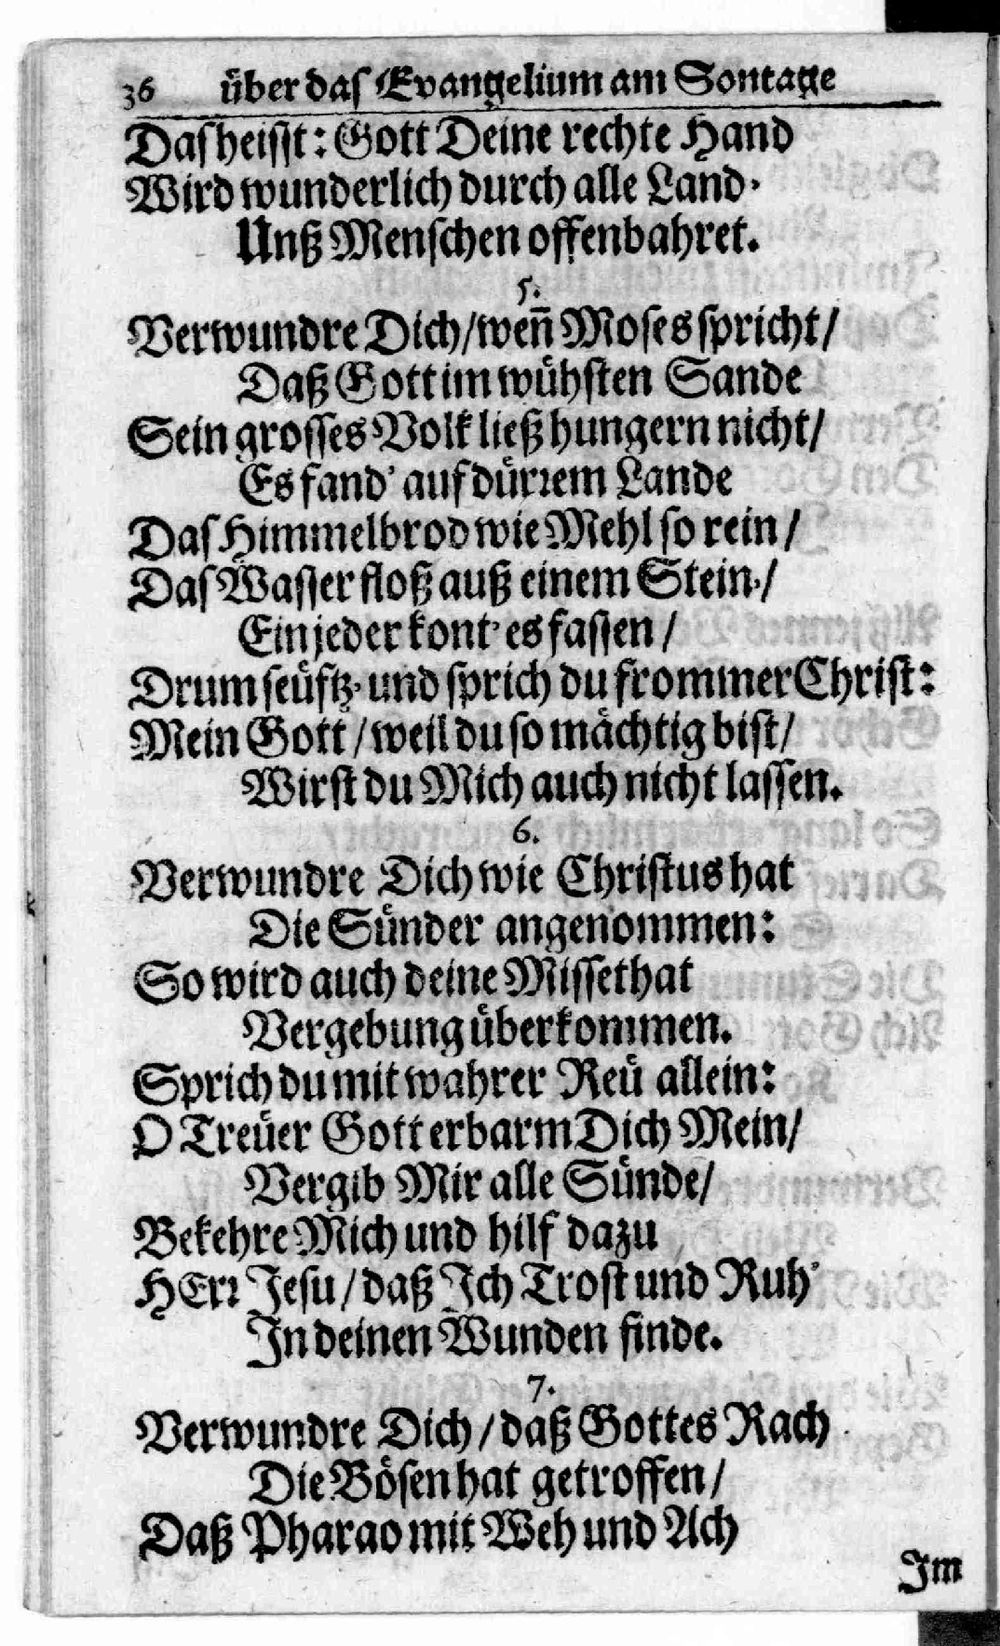 36 über das Evangelium am Sontage
Das heisst: Gott Deine rechte Hand
Wird wunderlich durch alle Land'
Unß Menschen offenbahret.
5.
Verwundre Dich/ weñ Moses spricht/
Daß Gott im wühsten Sande
Sein grosses Volk ließ hungern nicht/
Es fand' auf dürrem Lande
Das Himmelbrod wie Mehl so rein/
Das Wasser floß auß einem Stein/
Ein jeder kont' es fassen/
Drum seüftz' und sprich du frommer Christ:
Mein Gott/ weil du so mächtig bist/
Wirst du Mich auch nicht lassen.
6.
Verwundre Dich wie Christus hat
Die Sünder angenommen:
So wird auch deine Missethat
Vergebung überkommen.
Sprich du mit wahrer Reü allein:
O Treüer Gott erbarm Dich Mein/
Vergib Mir alle Sünde/
Bekehre Mich und hilf dazu
HErr Jesu/ daß Ich Trost und Ruh'
In deinen Wunden finde.
7.
Verwundre Dich/ daß Gottes Rach
Die Bösen hat getroffen/
Daß Pharao mit Weh und Ach
Im